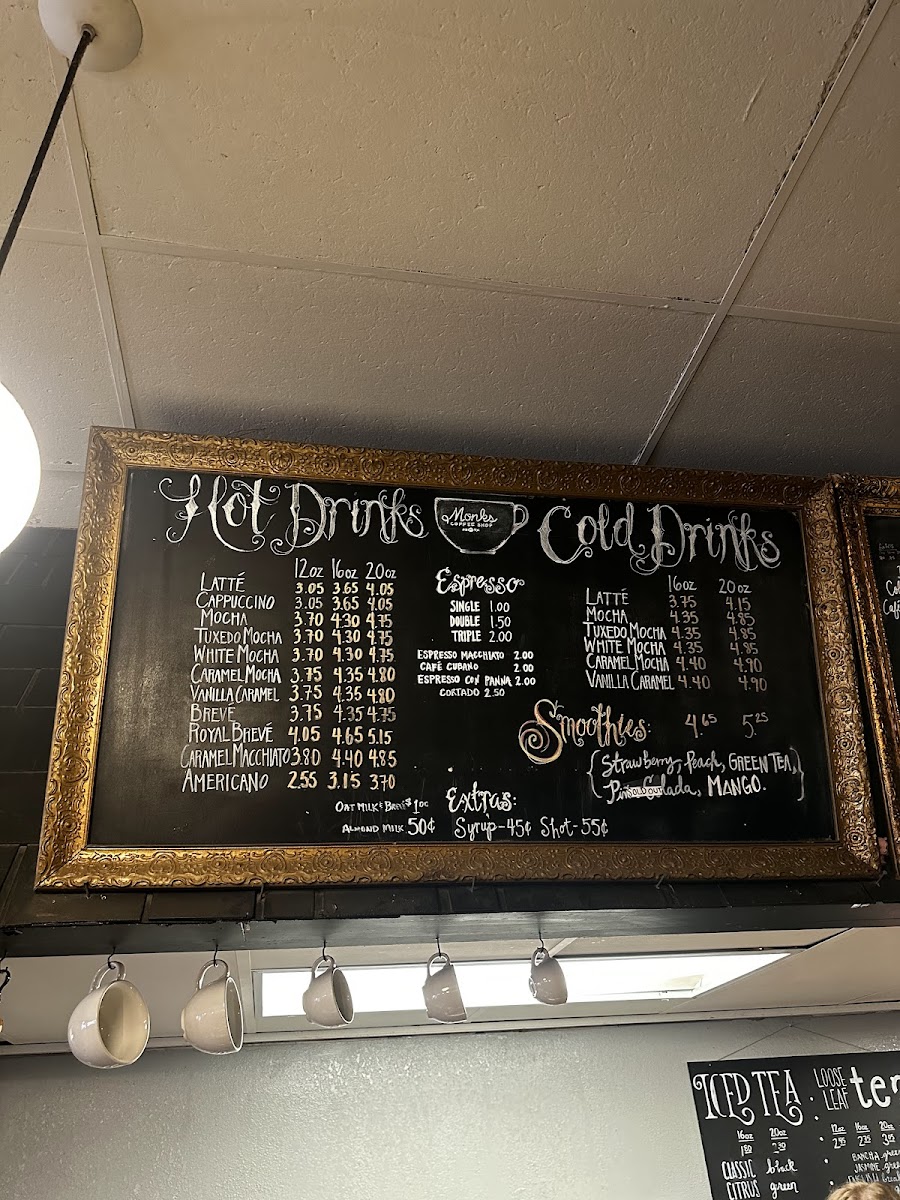 Hot Drinks
Monks
COFFEE SHOP
Cold Drinks
12oz 16oz 20oz
LATTÉ 3.05 3.65 4.05
CAPPUCCINO 3.05 3.65 4.05
MOCHA 3.70 4.30 4.75
TUXEDO MOCHA 3.70 4.30 4.75
WHITE MOCHA 3.70 4.30 4.75
CARAMEL MOCHA 3.75 4.35 4.80
VANILLA CARAMEL 3.75 4.35 4.80
BREVÉ 3.75 4.35 4.75
ROYAL BREVÉ 4.05 4.65 5.15
CARAMEL MACCHIATO 3.80 4.40 4.85
AMERICANO 2.55 3.15 3.70
Espresso
SINGLE 1.00
DOUBLE 1.50
TRIPLE 2.00
ESPRESSO MACCHIATO 2.00
CAFÉ CUBANO 2.00
ESPRESSO CON PANNA 2.00
CORTADO 2.50
16oz 20oz
LATTÉ 3.75 4.15
MOCHA 4.35 4.85
TUXEDO MOCHA 4.35 4.85
WHITE MOCHA 4.35 4.85
CARAMEL MOCHA 4.40 4.90
VANILLA CARAMEL 4.40 4.90
Smoothies: 4.65 5.25
{Strawberry, Peach, GREEN TEA,
SOLD OUT Colada, MANGO.}
Extras:
OAT MILK & BREVÉ $1.00
ALMOND MILK 50¢
Syrup-45¢ Shot-55¢
ICED TEA
16oz 20oz
1.80 2.30
CLASSIC black
CITRUS green
LOOSE
LEAF
12oz 16oz 20oz
BANCHA
JASMINE